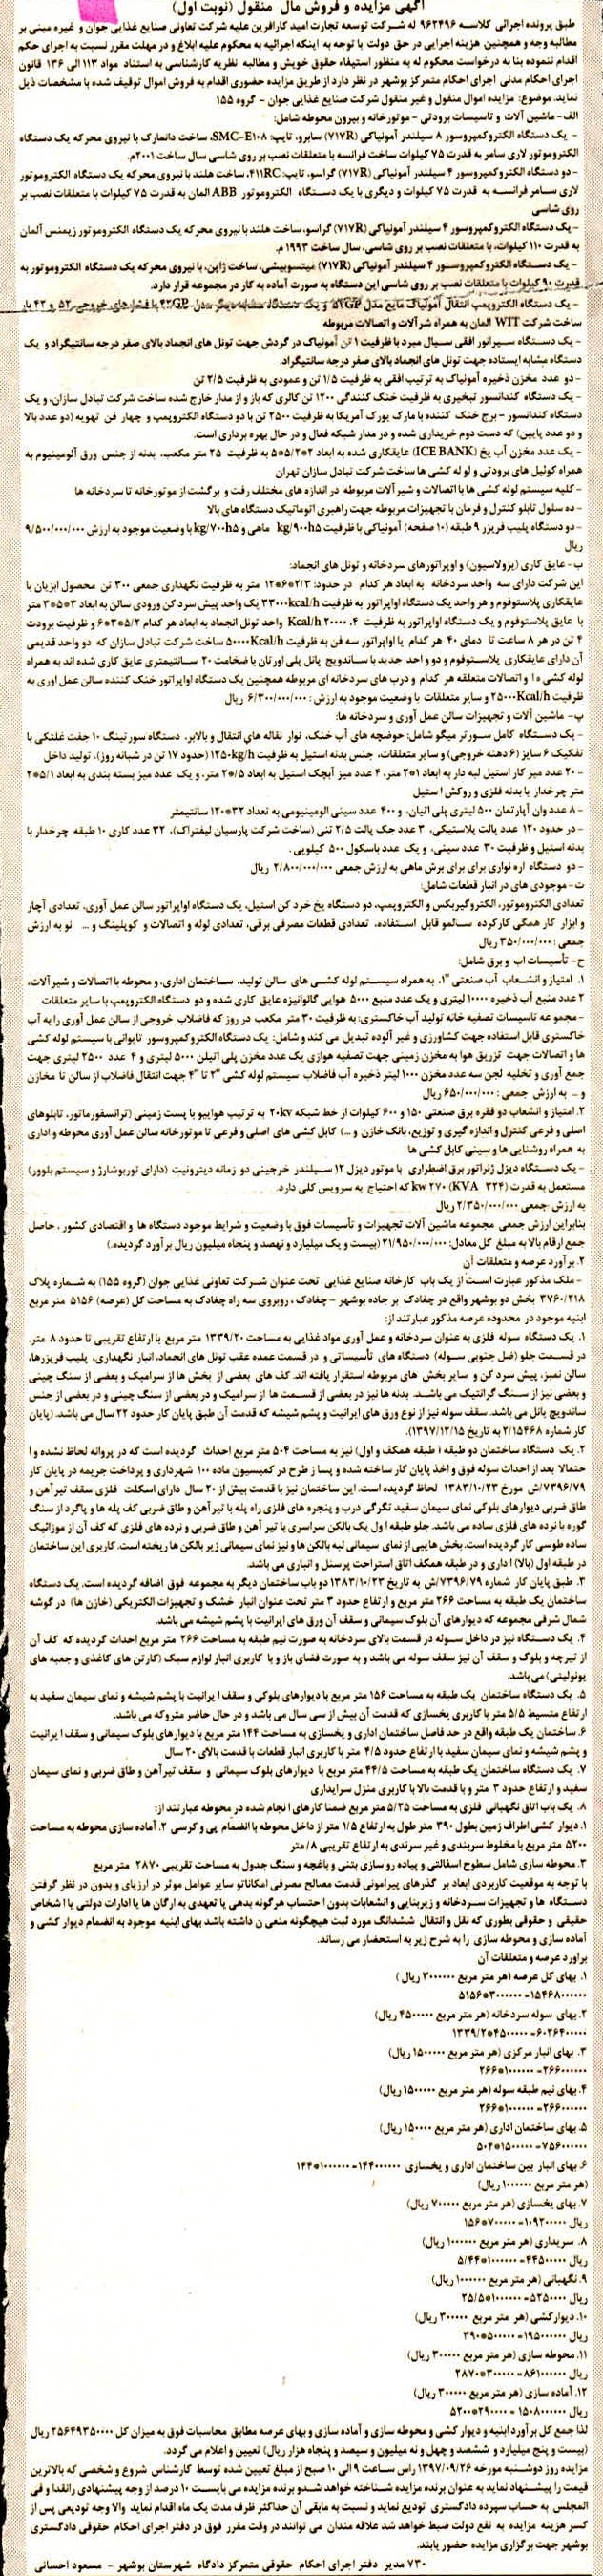 آگهی مزایده و فروش مال منقول (نوبت اول)
طبق پرونده اجرائی کلاسه ۹۶۲۴۹۶ له شرکت توسعه تجارت امید کارآفرین علیه شرکت تعاونی صنایع غذایی جوان و غیره مبنی بر
مطالبه وجه و همچنین هزینه اجرایی در حق دولت با توجه به اینکه اجرائیه به محکوم علیه ابلاغ و در مهلت مقرر نسبت به اجرای حکم
اقدام ننموده بنا به درخواست محکوم له به منظور استیفاء حقوق خویش و مطالبه نظریه کارشناسی به استناد مواد ۱۱۳ الی ۱۳۶ قانون
اجرای احکام مدنی اجرای احکام متمرکز بوشهر در نظر دارد از طریق مزایده حضوری اقدام به فروش اموال توقیف شده با مشخصات ذیل
نماید. موضوع: مزایده اموال منقول و غیر منقول شرکت صنایع غذایی جوان - گروه ۱۵۵
الف - ماشین آلات و تاسیسات برودتی - موتورخانه و بیرون محوطه شامل:
- یک دستگاه الکتروکمپروسور ۸ سیلندر آمونیاکی (۷۱۷R) سابرو، تایپ: SMC-E۱۰۸، ساخت دانمارک با نیروی محرکه یک دستگاه
الکتروموتور لاری سامر به قدرت ۷۵ کیلوات ساخت فرانسه با متعلقات نصب بر روی شاسی سال ساخت ۲۰۰۱م.
- دو دستگاه الکتروکمپروسور ۴ سیلندر آمونیاکی (۷۱۷R) گراسو، تایپ: ۴۱۱RC، ساخت هلند با نیروی محرکه یک دستگاه الکتروموتور
لاری سامر فرانسه به قدرت ۷۵ کیلوات و دیگری با یک دستگاه الکتروموتور ABB آلمان به قدرت ۷۵ کیلوات با متعلقات نصب بر
روی شاسی
- یک دستگاه الکتروکمپروسور ۴ سیلندر آمونیاکی (۷۱۷R) گراسو، ساخت هلند با نیروی محرکه یک دستگاه الکتروموتور زیمنس آلمان
به قدرت ۱۱۰ کیلوات، با متعلقات نصب بر روی شاسی، سال ساخت ۱۹۹۳ م.
- یک دستگاه الکتروکمپروسور ۴ سیلندر آمونیاکی (۷۱۷R) میتسوبیشی، ساخت ژاپن، با نیروی محرکه یک دستگاه الکتروموتور به
قدرت ۹۰ کیلوات با متعلقات نصب بر روی شاسی این دستگاه به صورت آماده به کار در مجموعه قرار دارد.
- یک دستگاه الکتروپمپ انتقال آمونیاک مایع مدل و یک دستگاه مشابه دیگر مدل ۴۲GP با فشارهای خروجی ۵۲ و ۴۲ بار
ساخت شرکت WITT آلمان به همراه شیرآلات و اتصالات مربوطه
- یک دستگاه سپراتور افقی سیال مبرد با ظرفیت ۱ تن آمونیاک در گردش جهت تونل های انجماد بالای صفر درجه سانتیگراد و یک
دستگاه مشابه ایستاده جهت تونل های انجماد بالای صفر درجه سانتیگراد.
- دو عدد مخزن ذخیره آمونیاک به ترتیب افقی به ظرفیت ۱/۵ تن و عمودی به ظرفیت ۲/۵ تن
- یک دستگاه کندانسور تبخیری به ظرفیت خنک کنندگی ۱۲۰۰ تن کالری که باز و از مدار خارج شده ساخت شرکت تبادل سازان، و یک
دستگاه کندانسور - برج خنک کننده با مارک یورک آمریکا به ظرفیت ۲۵۰۰ تن با دو دستگاه الکتروپمپ و چهار فن تهویه (دو عدد بالا
و دو عدد پایین) که دست دوم خریداری شده و در مدار شبکه فعال و در حال بهره برداری است.
- یک عدد مخزن آب یخ (ICE BANK) عایقکاری شده به ابعاد ۲*۲/۵*۵ به ظرفیت ۲۵ متر مکعب، بدنه از جنس ورق آلومینیوم به
همراه کوئیل های برودتی و لوله کشی ها ساخت شرکت تبادل سازان تهران
- کلیه سیستم لوله کشی ها با اتصالات و شیرآلات مربوطه در اندازه های مختلف رفت و برگشت از موتورخانه تا سردخانه ها
- ده سلول تابلو کنترل و فرمان با تجهیزات مربوطه جهت راهبری اتوماتیک دستگاه های بالا
- دو دستگاه پلیت فریزر ۹ طبقه (۱۰ صفحه) آمونیاکی با ظرفیت kg/۹۰۰h۵ ماهی و kg/۷۰۰h۵ با وضعیت موجود به ارزش ۹/۵۰۰/۰۰۰/۰۰۰
ریال
ب- عایق کاری (یزولاسیون) و اواپراتورهای سردخانه و تونل های انجماد:
این شرکت دارای سه واحد سردخانه به ابعاد هر کدام در حدود: ۲/۳*۶*۱۲ متر به ظرفیت نگهداری جمعی ۳۰۰ تن محصول آبزیان با
عایقکاری پلاستوفوم و هر واحد یک دستگاه اواپراتور به ظرفیت ۳۳۰۰۰kcal/h یک واحد پیش سرد کن ورودی سالن به ابعاد ۳*۵*۳ متر
با عایق پلاستوفوم و یک دستگاه اواپراتور به ظرفیت Kcal/h ۲۰۰۰۰، ۴ واحد تونل انجماد به ابعاد هر کدام ۵/۲*۳*۶ و ظرفیت برودت
۴ تن در هر ۸ ساعت تا دمای ۴۰ هر کدام با اواپراتور سه فن به ظرفیت ۵۰۰۰۰Kcal/h ساخت شرکت تبادل سازان که دو واحد قدیمی
آن دارای عایقکاری پلاستوفوم و دو واحد جدید با ساندویچ پانل پلی اورتان با ضخامت ۲۰ سانتیمتری عایق کاری شده اند به همراه
لوله کشی ها و اتصالات متعلقه هر کدام و درب های سردخانه ای مربوطه همچنین یک دستگاه اواپراتور خنک کننده سالن عمل آوری به
ظرفیت ۲۵۰۰۰Kcal/h و سایر متعلقات با وضعیت موجود به ارزش: ۶/۳۰۰/۰۰۰/۰۰۰ ریال
پ- ماشین آلات و تجهیزات سالن عمل آوری و سردخانه ها:
- یک دستگاه کامل سورتر میگو شامل: حوضچه های آب خنک، نوار نقاله های انتقال و بالابر، دستگاه سورتینگ ۱۰ جفت غلتکی با
تفکیک ۶ سایز (۶ دهنه خروجی) و سایر متعلقات، جنس بدنه استیل به ظرفیت ۱۲۵۰kg/h (حدود ۱۷ تن در شبانه روز)، تولید داخل
- ۲۰ عدد میز کار استیل لبه دار به ابعاد ۱*۲ متر، ۴ عدد میز آبچک استیل به ابعاد ۲/۵* متر، و یک عدد میز بسته بندی به ابعاد ۱/۵*۲
متر چرخدار با بدنه فلزی و روکش استیل
- ۸ عدد وان آپارتمان ۵۰۰ لیتری پلی اتیلن، و ۴۰۰ عدد سینی آلومینیومی به تعداد ۳۲*۱۲۰ سانتیمتر
- در حدود ۱۲۰ عدد پالت پلاستیکی، ۳ عدد جک پالت ۲/۵ تنی (ساخت شرکت پارسیان لیفتراک)، ۳۲ عدد کاری ۱۰ طبقه چرخدار با
بدنه استیل و ظرفیت ۳۰ عدد سینی، و یک عدد باسکول ۵۰۰ کیلویی.
- دو دستگاه اره نواری برای برای برش ماهی به ارزش جمعی ۲/۸۰۰/۰۰۰/۰۰۰ ریال
ت- موجودی های در انبار قطعات شامل:
تعدادی الکتروموتور، الکتروگیربکس و الکتروپمپ، دو دستگاه یخ خرد کن استیل، یک دستگاه اواپراتور سالن عمل آوری، تعدادی آچار
و ابزار کار همگی کارکرده سالم و قابل استفاده، تعدادی قطعات مصرفی برقی، تعدادی لوله و اتصالات و کوپلینگ و ... نو به ارزش
جمعی: ۳۵۰/۰۰۰/۰۰۰ ریال
ح- تأسیسات آب و برق شامل:
۱. امتیاز و انشعاب آب صنعتی "۱، به همراه سیستم لوله کشی های سالن تولید، ساختمان اداری، و محوطه با اتصالات و شیرآلات،
۲ عدد منبع آب ذخیره ۱۰۰۰۰ لیتری و یک عدد منبع ۵۰۰۰ هوایی گالوانیزه عایق کاری شده و دو دستگاه الکتروپمپ با سایر متعلقات
- مجموعه تاسیسات تصفیه خانه تولید آب خاکستری: به ظرفیت ۳۰ متر مکعب در روز که فاضلاب خروجی از سالن عمل آوری را به آب
خاکستری قابل استفاده جهت کشاورزی و غیر آلوده تبدیل می کند و شامل: یک دستگاه الکتروکمپروسور تابوانی با سیستم لوله کشی
ها و اتصالات جهت تزریق هوا به مخزن زمینی جهت تصفیه هوازی یک عدد مخزن پلی اتیلن ۵۰۰۰ لیتری و ۴ عدد ۲۵۰۰ لیتری جهت
جمع آوری و تخلیه لجن سه عدد مخزن ۱۰۰۰ لیتر ذخیره آب فاضلاب سیستم لوله کشی "۳ تا "۴ جهت انتقال فاضلاب از سالن تا مخازن
و ... به ارزش جمعی: ۶۵۰/۰۰۰/۰۰۰ ریال
۲. امتیاز و انشعاب دو فقره برق صنعتی ۱۵۰ و ۶۰۰ کیلوات از خط شبکه ۲۰kv به ترتیب هوایی و با پست زمینی (ترانسفورماتور، تابلوهای
اصلی و فرعی کنترل و اندازه گیری و توزیع، بانک خازن و ...) کابل کشی های اصلی و فرعی تا موتورخانه سالن عمل آوری محوطه و اداری
به همراه روشنایی ها و سینی کابل کشی ها
- یک دستگاه دیزل ژنراتور برق اضطراری با موتور دیزل ۱۲ سیلندر خرجینی دو زمانه دیترویت (دارای توربوشارژ و سیستم بلوور)
مستعمل به قدرت kw ۲۷۰ (KVA ۳۲۴) که احتیاج به سرویس کلی دارد.
به ارزش جمعی ۲/۳۵۰/۰۰۰/۰۰۰ ریال
بنابراین ارزش جمعی مجموعه ماشین آلات تجهیزات و تأسیسات فوق با وضعیت و شرایط موجود دستگاه ها و اقتصادی کشور، حاصل
جمع ارقام بالا به مبلغ کل معادل: ۲۱/۹۵۰/۰۰۰/۰۰۰ (بیست و یک میلیارد و نهصد و پنجاه میلیون ریال برآورد گردیده.)
۲. برآورد عرصه و متعلقات آن
- ملک مذکور عبارت است از یک باب کارخانه صنایع غذایی تحت عنوان شرکت تعاونی غذایی جوان (گروه ۱۵۵) به شماره پلاک
۳۷۶۰/۲۱۸ بخش دو بوشهر واقع در چغادک بر جاده بوشهر - چغادک، روبروی سه راه چغادک به مساحت کل (عرصه) ۵۱۵۶ متر مربع
ابنیه موجود در محدوده عرصه مذکور عبارتند از:
۱. یک دستگاه سوله فلزی به عنوان سردخانه و عمل آوری مواد غذایی به مساحت ۱۳۳۹/۲۰ متر مربع با ارتفاع تقریبی تا حدود ۸ متر.
در قسمت جلو (ضل جنوبی سوله) دستگاه های تأسیساتی و در قسمت عمده عقب تونل های انجماد، انبار نگهداری، پلیت فریزرها،
سالن تمیز، پیش سرد کن و سایر بخش های مربوطه استقرار یافته اند. کف های بعضی از بخش ها از سرامیک و بعضی از سنگ چینی
و بعضی نیز از سنگ گرانتیک می باشد. بدنه ها نیز در بعضی از قسمت ها از سرامیک و در بعضی از سنگ چینی و در بعضی از جنس
ساندویچ پانل می باشد. سقف سوله نیز از نوع ورق های ایرانیت و پشم شیشه که قدمت آن طبق پایان کار حدود ۲۲ سال می باشد. (پایان
کار شماره ۲/۱۵۴۶۸ به تاریخ ۱۳۹۷/۱۲/۱۵).
۲. یک دستگاه ساختمان دو طبقه (طبقه همکف و اول) نیز به مساحت ۵۰۴ متر مربع احداث گردیده است که در پروانه لحاظ نشده و ا
حتمالا بعد از احداث سوله فوق و اخذ پایان کار ساخته شده و پس از طرح در کمیسیون ماده ۱۰۰ شهرداری و پرداخت جریمه در پایان کار
۷۳۹۶/۷۹/ش مورخ ۱۳۸۳/۱۰/۲۳ لحاظ گردیده است. این ساختمان نیز با قدمت بیش از ۲۰ سال دارای اسکلت فلزی سقف تیرآهن و
طاق ضربی دیوارهای بلوکی نمای سیمان سفید تگرگی درب و پنجره های فلزی راه پله با تیرآهن و طاق ضربی کف پله ها و پاگرد از سنگ
گوره با نرده های فلزی ساده می باشد. جلو طبقه اول یک بالکن سراسری با تیر آهن و طاق ضربی و نرده های فلزی که کف آن از موزائیک
ساده طوسی کار گردیده است. بخش هایی از نمای سیمانی لبه بالکن ها و نیز نمای سیمانی زیر بالکن ها ریخته است. کاربری این ساختمان
در طبقه اول (بالا) اداری و در طبقه همکف اتاق استراحت پرسنل و انباری می باشد.
۳. طبق پایان کار شماره ۷۳۹۶/۷۹/ش به تاریخ ۱۳۸۳/۱۰/۲۳ دو باب ساختمان دیگر به مجموعه فوق اضافه گردیده است. یک دستگاه
ساختمان یک طبقه به مساحت ۲۶۶ متر مربع و ارتفاع حدود ۳ متر تحت عنوان انبار خشک و تجهیزات الکتریکی (خازن ها) در گوشه
شمال شرقی مجموعه که دیوارهای آن بلوک سیمانی و سقف آن ورق های ایرانیت با پشم شیشه می باشد.
۴. یک دستگاه نیز در داخل سوله در قسمت بالای سردخانه به صورت نیم طبقه به مساحت ۲۶۶ متر مربع احداث گردیده که کف آن
از تیرچه و بلوک و سقف آن نیز سقف سوله می باشد و به صورت فضای باز و با کاربری انبار لوازم سبک (کارتن های کاغذی و جعبه های
یونولیتی) می باشد.
۵. یک دستگاه ساختمان یک طبقه به مساحت ۱۵۶ متر مربع با دیوارهای بلوکی و سقف ایرانیت با پشم شیشه و نمای سیمان سفید به
ارتفاع متسیط ۵/۵ متر با کاربری یخسازی که قدمت آن بیش از سی سال می باشد و در حال حاضر متروکه می باشد.
۶. ساختمان یک طبقه واقع در حد فاصل ساختمان اداری و یخسازی به مساحت ۱۴۴ متر مربع با دیوارهای بلوک سیمانی و سقف ایرانیت
و پشم شیشه و نمای سیمان سفید با ارتفاع حدود ۴/۵ متر با کاربری انبار قطعات با قدمت بالای ۲۰ سال
۷. یک دستگاه ساختمان یک طبقه به مساحت ۴۴/۵ متر مربع با دیوارهای بلوک سیمانی و سقف تیرآهن و طاق ضربی و نمای سیمان
سفید و ارتفاع حدود ۳ متر و با قدمت بالا با کاربری منزل سرایداری
۸. یک باب اتاق نگهبانی فلزی به مساحت ۵/۲۵ متر مربع ضمنا کارهای انجام شده در محوطه عبارتند از:
۱. دیوار کشی اطراف زمین بطول ۳۹۰ متر طول به ارتفاع ۱/۵ متر از داخل محوطه با انضمام پی و کرسی ۲. آماده سازی محوطه به مساحت
۵۲۰۰ متر مربع با مخلوط سربندی و غیر سرندی به ارتفاع تقریبی ۸/ متر
۳. محوطه سازی شامل سطوح آسفالتی و پیاده رو سازی بتنی و باغچه و سنگ جدول به مساحت تقریبی ۲۸۷۰ متر مربع
با توجه به موقعیت کاربردی ابعاد بر گذرهای پیرامونی قدمت مصالح مصرفی امکاناتو سایر عوامل موثر در ارزیای و بدون در نظر گرفتن
دستگاه ها و تجهیزات سردخانه و زیربنایی و انشعابات بدون احتساب هرگونه بدهی یا تعهدی به ارگان ها یا ادارات دولتی یا اشخاص
حقیقی و حقوقی بطوری که نقل و انتقال ششدانگ مورد ثبت هیچگونه منعی ن داشته باشد بهای ابنیه موجود به انضمام دیوار کشی و
آماده سازی و محوطه سازی را به شرح زیر به استحضار می رساند.
براورد عرصه و متعلقات آن
۱. بهای کل عرصه (هر متر مربع ۳۰۰۰۰۰۰ ریال)
۵۱۵۶*۳۰۰۰۰۰۰=۱۵۴۶۸۰۰۰۰۰۰
۲. بهای سوله سردخانه (هر متر مربع ۴۵۰۰۰۰۰ ریال)
۱۳۳۹/۲*۴۵۰۰۰۰۰=۶۰۲۶۴۰۰۰۰۰
۳. بهای انبار مرکزی (هر متر مربع ۱۵۰۰۰۰۰ ریال)
۲۶۶*۱۰۰۰۰۰۰=۲۶۶۰۰۰۰۰۰
۴. بهای نیم طبقه سوله (هر متر مربع ۱۵۰۰۰۰۰ ریال)
۲۶۶*۱۰۰۰۰۰۰=۲۶۶۰۰۰۰۰۰
۵. بهای ساختمان اداری (هر متر مربع ۱۵۰۰۰۰۰ ریال)
۵۰۴*۱۵۰۰۰۰۰=۷۵۶۰۰۰۰۰۰
۶. بهای انبار بین ساختمان اداری و یخسازی ۱۴۴*۱۰۰۰۰۰۰=۱۴۴۰۰۰۰۰۰
(هر متر مربع ۱۰۰۰۰۰۰ ریال)
۷. بهای یخسازی (هر متر مربع ۷۰۰۰۰۰ ریال)
۱۵۶*۷۰۰۰۰۰=۱۰۹۲۰۰۰۰۰ ریال
۸. سریداری (هر متر مربع ۱۰۰۰۰۰۰ ریال)
۵/۴۴*۱۰۰۰۰۰۰=۴۴۵۰۰۰۰۰ ریال
۹. نگهبانی (هر متر مربع ۱۰۰۰۰۰۰ ریال)
۲۵/۵*۱۰۰۰۰۰۰=۵۲۵۰۰۰۰ ریال
۱۰. دیوارکشی (هر متر مربع ۳۰۰۰۰۰ ریال)
۳۹۰*۵۰۰۰۰۰=۱۹۵۰۰۰۰۰۰ ریال
۱۱. محوطه سازی (هر متر مربع ۳۰۰۰۰۰ ریال)
۲۸۷۰*۳۰۰۰۰۰=۸۶۱۰۰۰۰۰۰ ریال
۱۲. آماده سازی (هر متر مربع ۳۰۰۰۰۰ ریال)
۵۲۰۰*۲۹۰۰۰۰=۱۵۰۸۰۰۰۰۰۰ ریال
لذا جمع کل برآورد ابنیه و دیوار کشی و محوطه سازی و آماده سازی و بهای عرصه مطابق محاسبات فوق به میزان کل ۲۵۶۴۹۳۵۰۰۰۰ ریال
(بیست و پنج میلیارد و ششصد و چهل و نه میلیون و سیصد و پنجاه هزار ریال) تعیین و اعلام می گردد.
مزایده روز دوشنبه مورخه ۱۳۹۷/۰۹/۲۶ راس ساعت ۹ الی ۱۰ صبح از مبلغ تعیین شده توسط کارشناس شروع و شخصی که بالاترین
قیمت را پیشنهاد نماید به عنوان برنده مزایده شناخته خواهد شد و برنده مزایده می بایست ۱۰ درصد از وجه پیشنهادی رانقدا و فی
المجلس به حساب سپرده دادگستری تودیع نماید و نسبت به مابقی آن حداکثر ظرف مدت یک ماه اقدام نماید والا وجه تودیعی پس از
کسر هزینه مزایده به نفع دولت ضبط خواهد شد علاقه مندان می توانند در وقت مقرر فوق در دفتر اجرای احکام حقوقی دادگستری
بوشهر جهت برگزاری مزایده حضور یابند.
۷۳۰ مدیر دفتر اجرای احکام حقوقی متمرکز دادگاه شهرستان بوشهر - مسعود احسانی